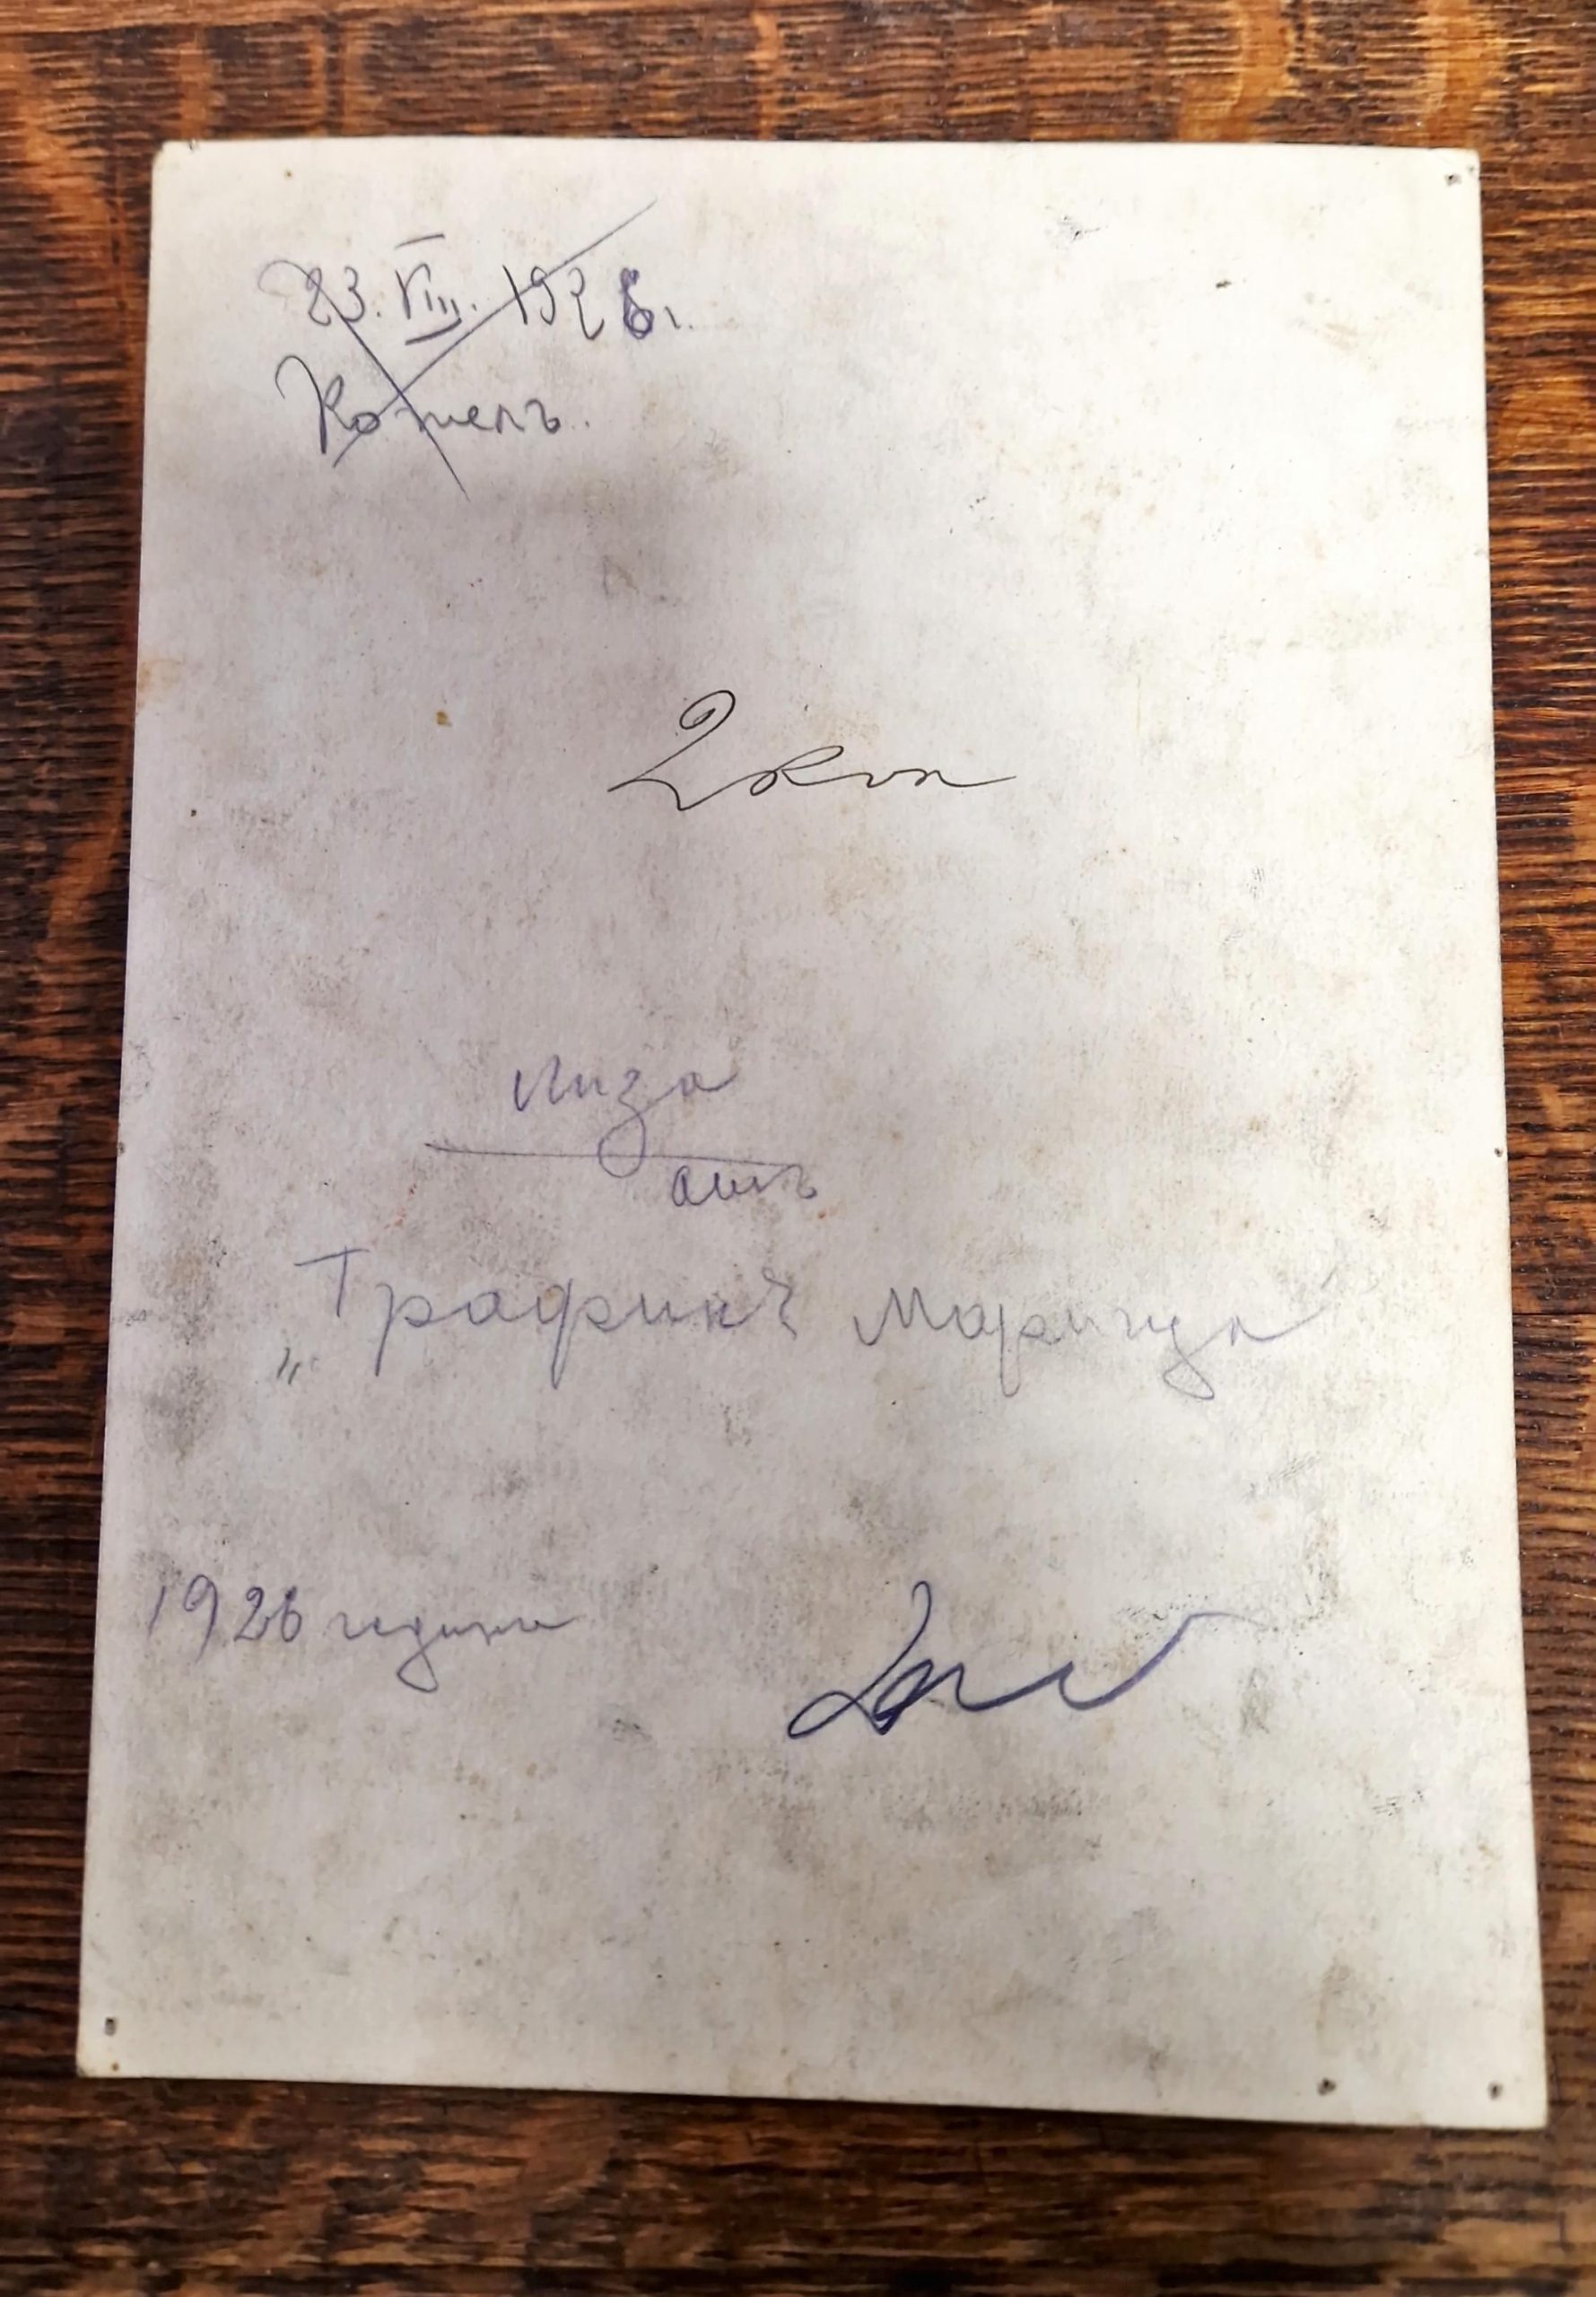 23. VIII. 1926 г.
Котелъ.
2 коп
Лиза
отъ
„Графинъ Марица
1926 година